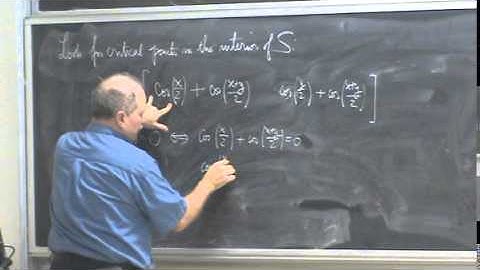 Look for critical points in the interior of S:
[cos(x/2) + cos((x+y)/2)   cos(y/2) + cos((x+y)/2)]
0 ⇔ cos(x/2) + cos((x+y)/2) = 0
cos